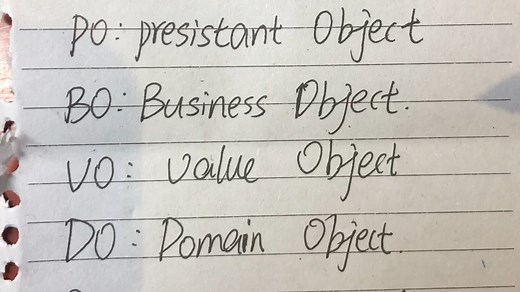 PO: presistant Object
BO: Business Object.
VO: value Object
DO: Domain Object.